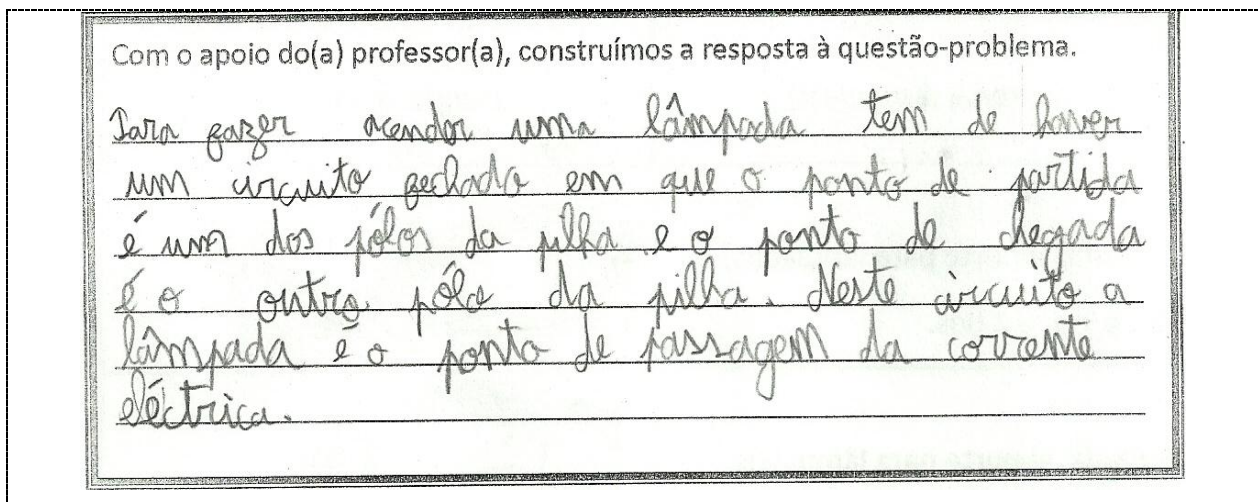 Com o apoio do(a) professor(a), construímos a resposta à questão-problema.
Para fazer acender uma lâmpada tem de haver
um circuito fechado em que o ponto de partida
é um dos pólos da pilha e o ponto de chegada
é o outro pólo da pilha. Neste circuito a
lâmpada é o ponto de passagem da corrente
eléctrica.